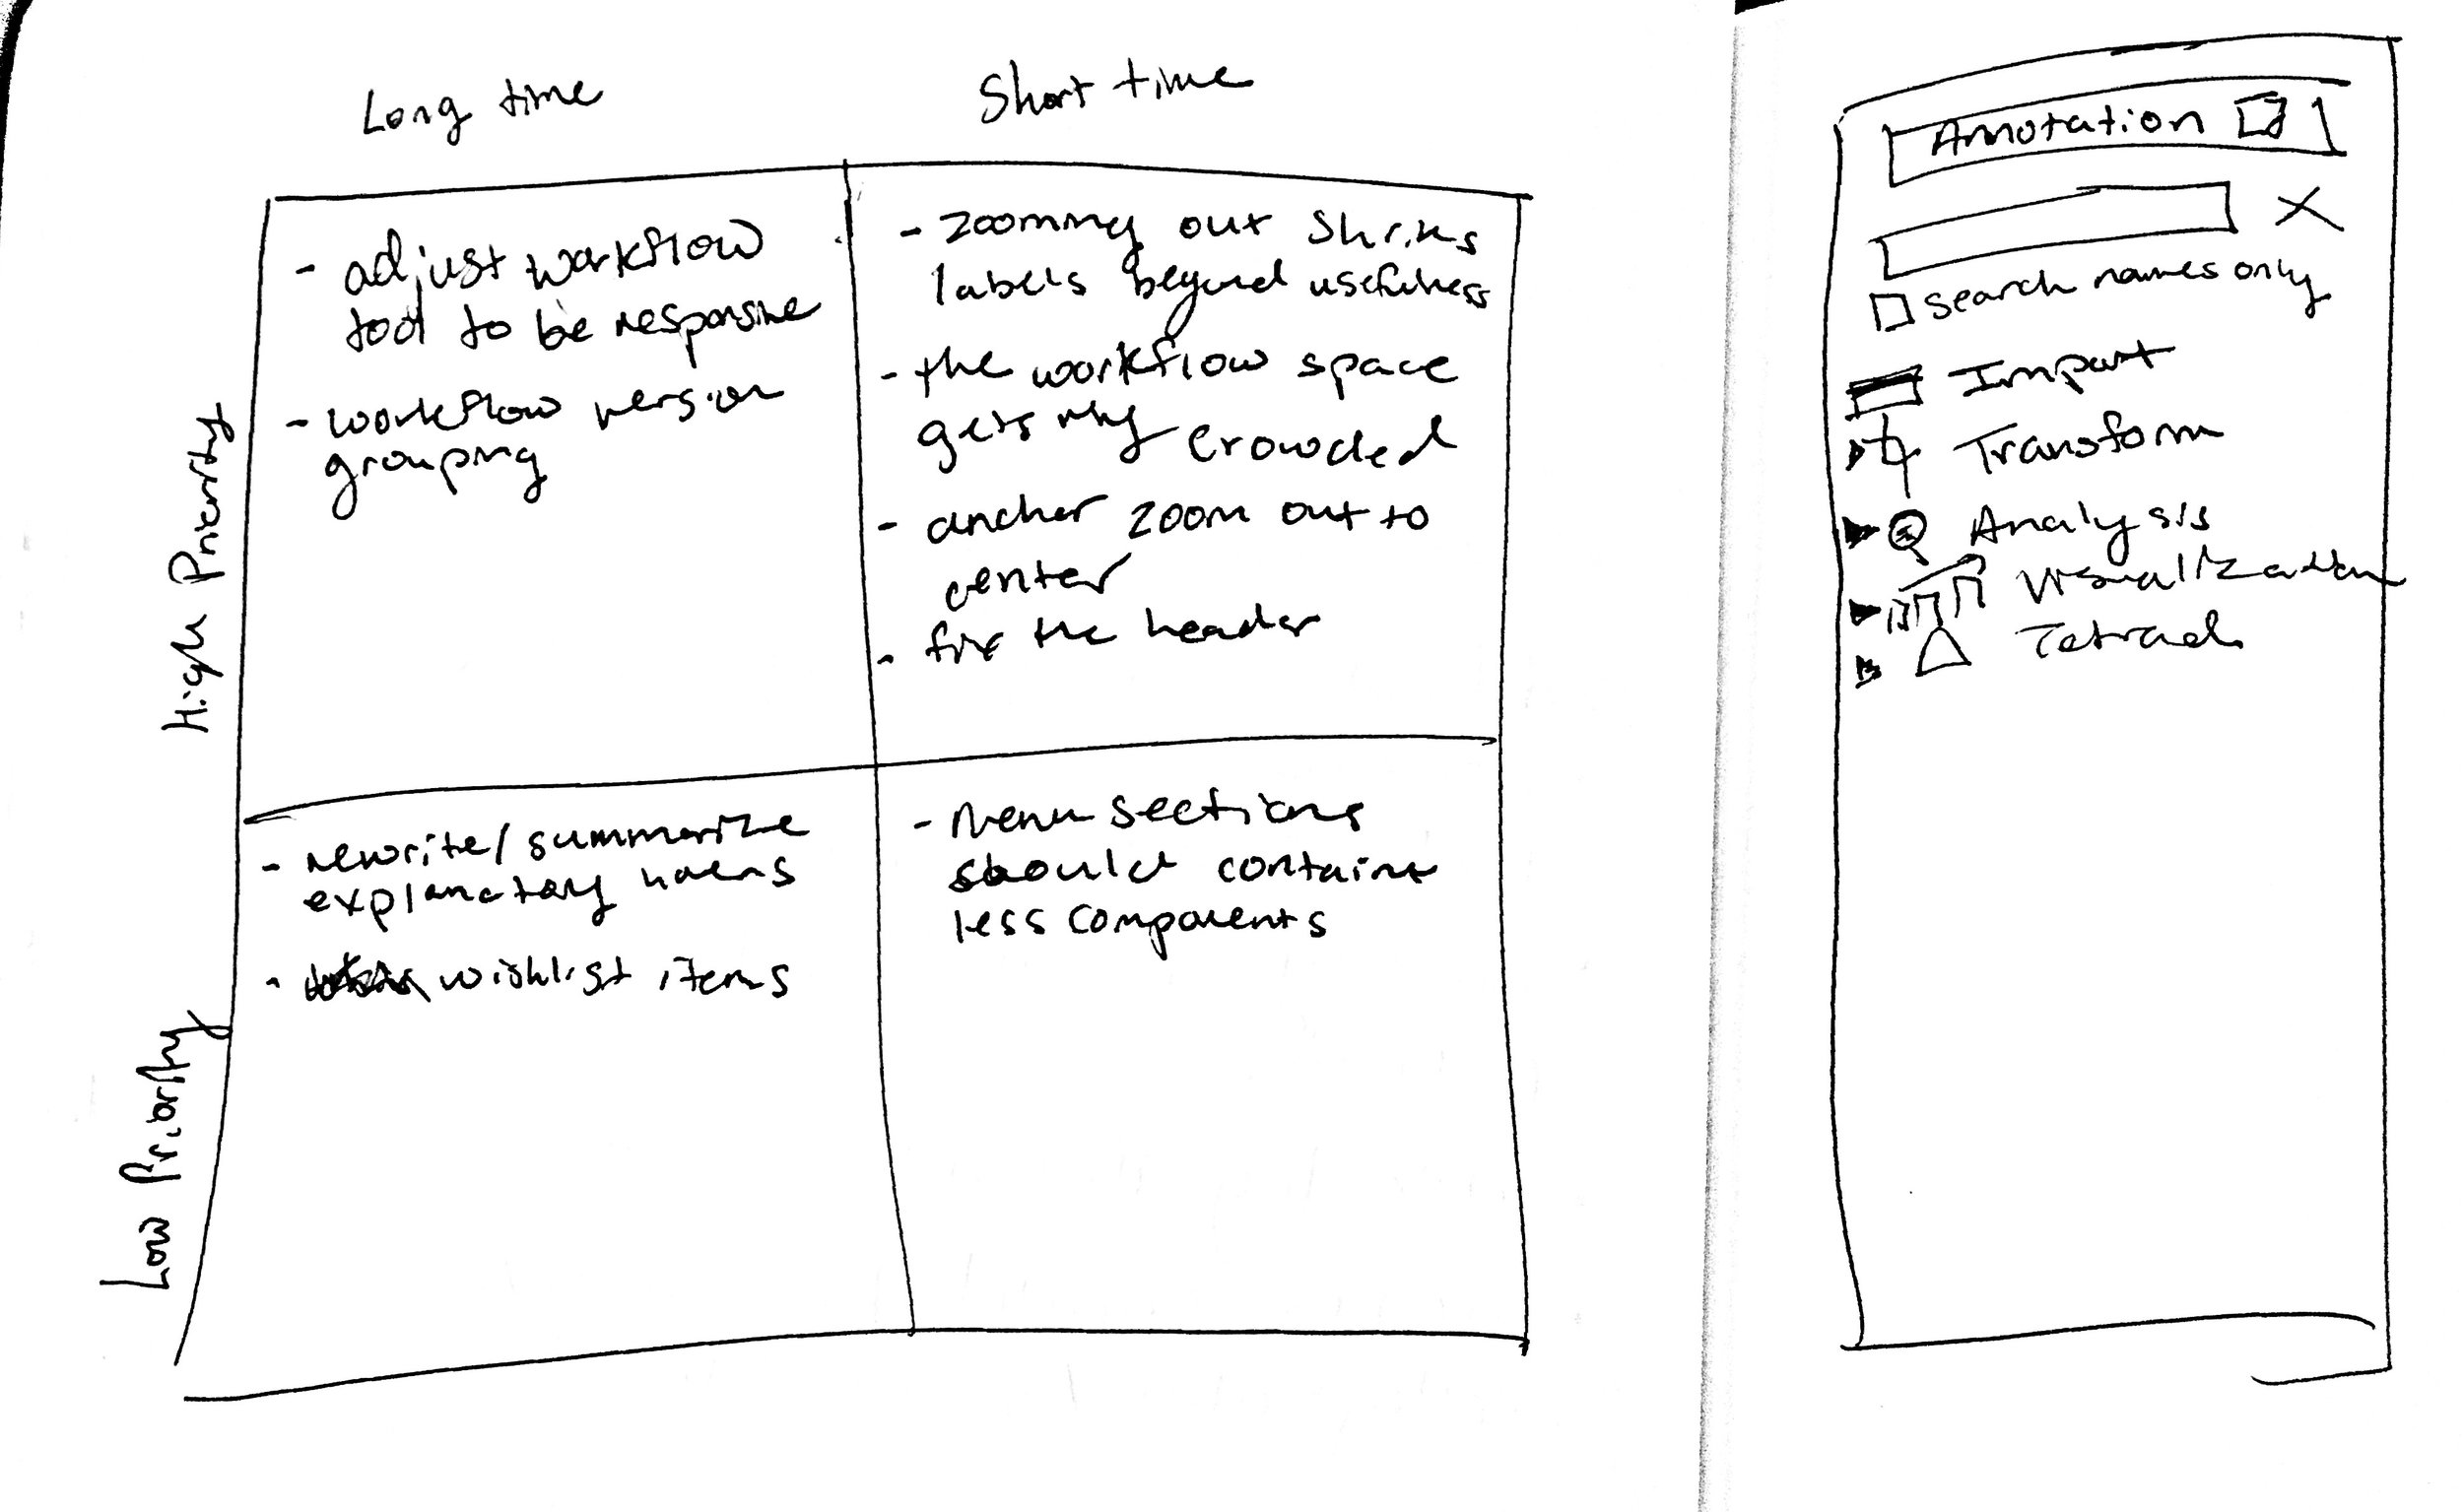 Long time
Short time
High Priority
- adjust workflow
tool to be responsive
- workflow version
grouping
- zooming out shrinks
labels beyond usefulness
- the workflow space
gets crowded
- anchor zoom out to
center
- fix the header
Low Priority
- rewrite/summarize
explanatory
- wishlist items
- Menu sections
should contain
less components
Annotation
X
search names only
Import
Transform
Analysis
Visualization
Tetrad